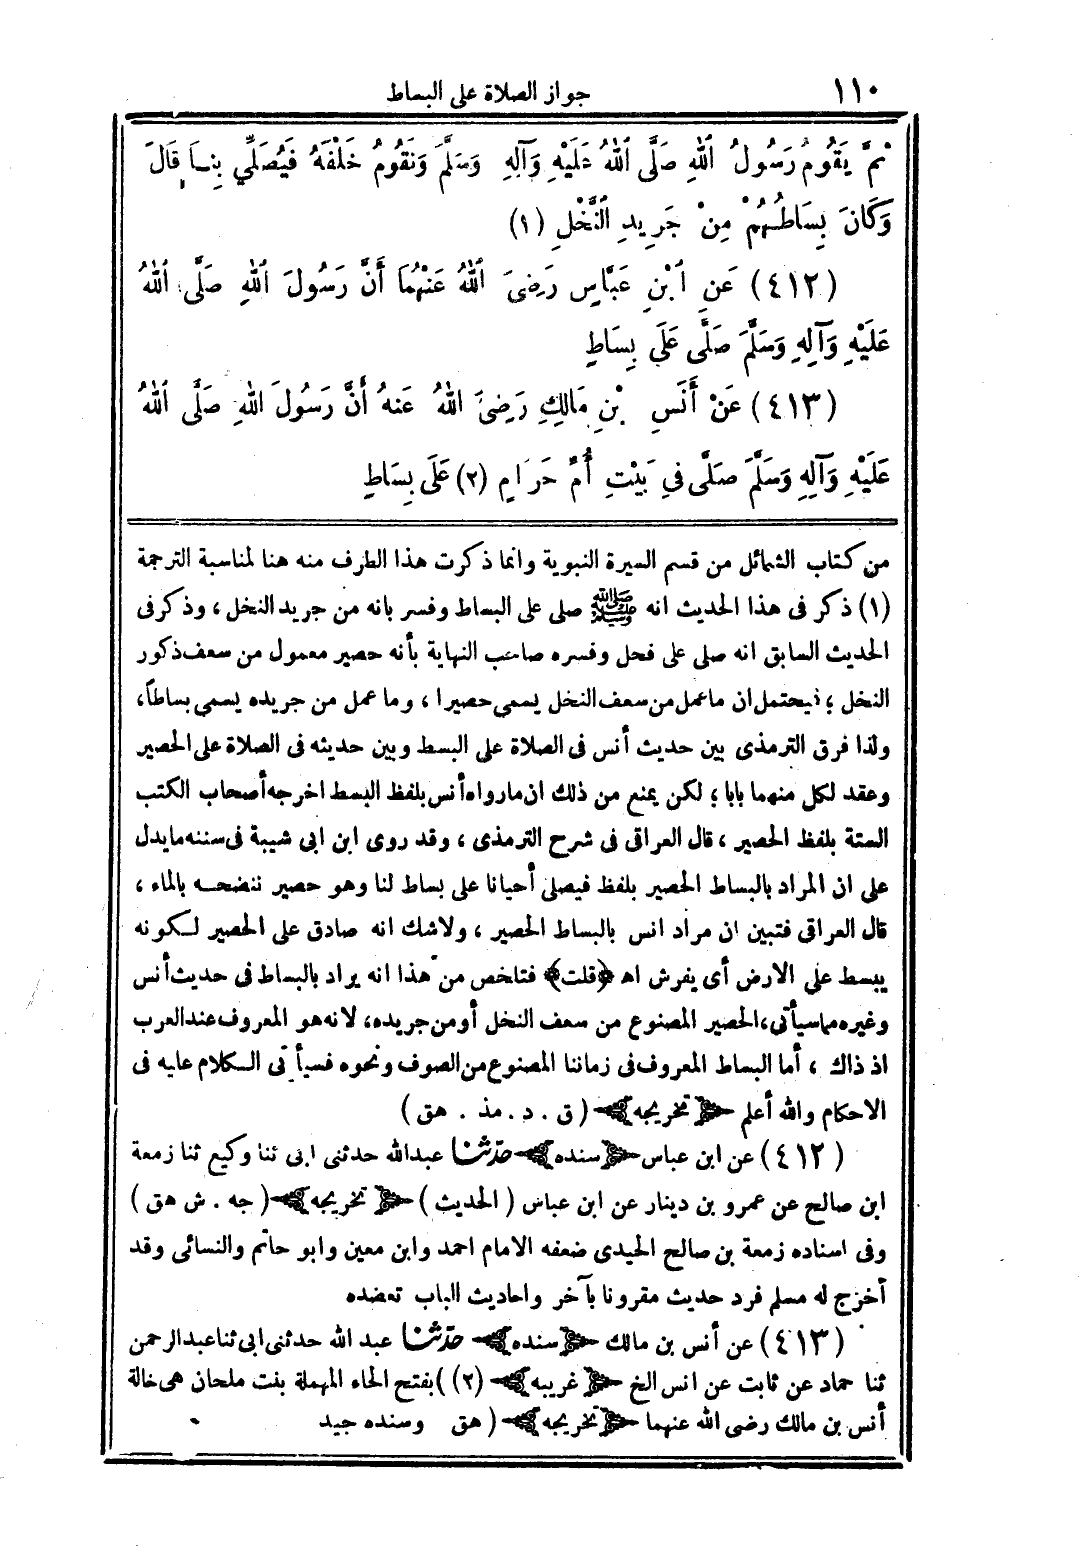 ١١٠
جواز الصلاة على البساط
ثمَّ يَقُومُ رَسُولُ اللهِ صَلَّى اللهُ عَلَيْهِ وَآلِهِ وَسَلَّمَ وَنَقُومُ خَلْفَهُ فَيُصَلِّي بِنَا قَالَ
وَكَانَ بِسَاطُهُمْ مِنْ جَرِيدِ النَّخْلِ (١)
(٤١٢) عَنِ ابْنِ عَبَّاسٍ رَضِيَ اللهُ عَنْهُمَا أَنَّ رَسُولَ اللهِ صَلَّى اللهُ
عَلَيْهِ وَآلِهِ وَسَلَّمَ صَلَّى عَلَى بِسَاطٍ
(٤١٣) عَنْ أَنَسِ بْنِ مَالِكٍ رَضِيَ اللهُ عَنهُ أَنَّ رَسُولَ اللهِ صَلَّى اللهُ
عَلَيْهِ وَآلِهِ وَسَلَّمَ صَلَّى فِي بَيْتِ أُمِّ حَرَامٍ (٢) عَلَى بِسَاطٍ
من كتاب الشمائل من قسم السيرة النبوية وانما ذكرت هذا الطرف منه هنا لمناسبة الترجمة
(١) ذكر فى هذا الحديث انه ﷺ صلى على البساط وفسر بانه من جريد النخل ، وذكر فى
الحديث السابق انه صلى على فحل وفسره صاحب النهاية بأنه حصير معمول من سعف ذكور
النخل ؛ فيحتمل ان ما عمل من سعف النخل يسمى حصيرا ، وما عمل من جريده يسمى بساطاً،
ولذا فرق الترمذى بين حديث أنس فى الصلاة على البسط وبين حديثه فى الصلاة على الحصير
وعقد لكل منهما بابا ؛ لكن يمنع من ذلك ان مارواه أنس بلفظ البسط اخرجه أصحاب الكتب
الستة بلفظ الحصير ، قال العراقى فى شرح الترمذى ، وقد روى ابن ابى شيبة فى سننه مايدل
على ان المراد بالبساط الحصير بلفظ فيصلى أحيانا على بساط لنا وهو حصير ننضحه بالماء ،
قال العراقى فتبين ان مراد انس بالبساط الحصير ، ولاشك انه صادق على الحصير لكونه
يبسط على الارض أى يفرش اه ﴿قلت﴾ فتلخص من هذا انه يراد بالبساط فى حديث أنس
وغيره مما سيأتى، الحصير المصنوع من سعف النخل أو من جريده، لانه هو المعروف عند العرب
اذ ذاك ، أما البساط المعروف فى زماننا المصنوع من الصوف ونحوه فسيأتى الكلام عليه فى
الاحكام والله أعلم ﴿تخريجه﴾ (ق . د . مذ . هق)
(٤١٢) عن ابن عباس ﴿سنده﴾ حدّثنا عبد الله حدثنى ابى ثنا وكيع ثنا زمعة
ابن صالح عن عمرو بن دينار عن ابن عباس (الحديث) ﴿تخريجه﴾ (جه . ش هق)
وفى اسناده زمعة بن صالح الحيدى ضعفه الامام احمد وابن معين وابو حاتم والنسائى وقد
أخرج له مسلم فرد حديث مقرونا بآخر واحاديث الباب تعضده
(٤١٣) عن أنس بن مالك ﴿سنده﴾ حدّثنا عبد الله حدثنى ابى ثنا عبد الرحمن
ثنا حماد عن ثابت عن انس الخ ﴿غريبه﴾ (٢)) بفتح الحاء المهملة بنت ملحان هى خالة
أنس بن مالك رضى الله عنهما ﴿تخريجه﴾ (هق وسنده جيد